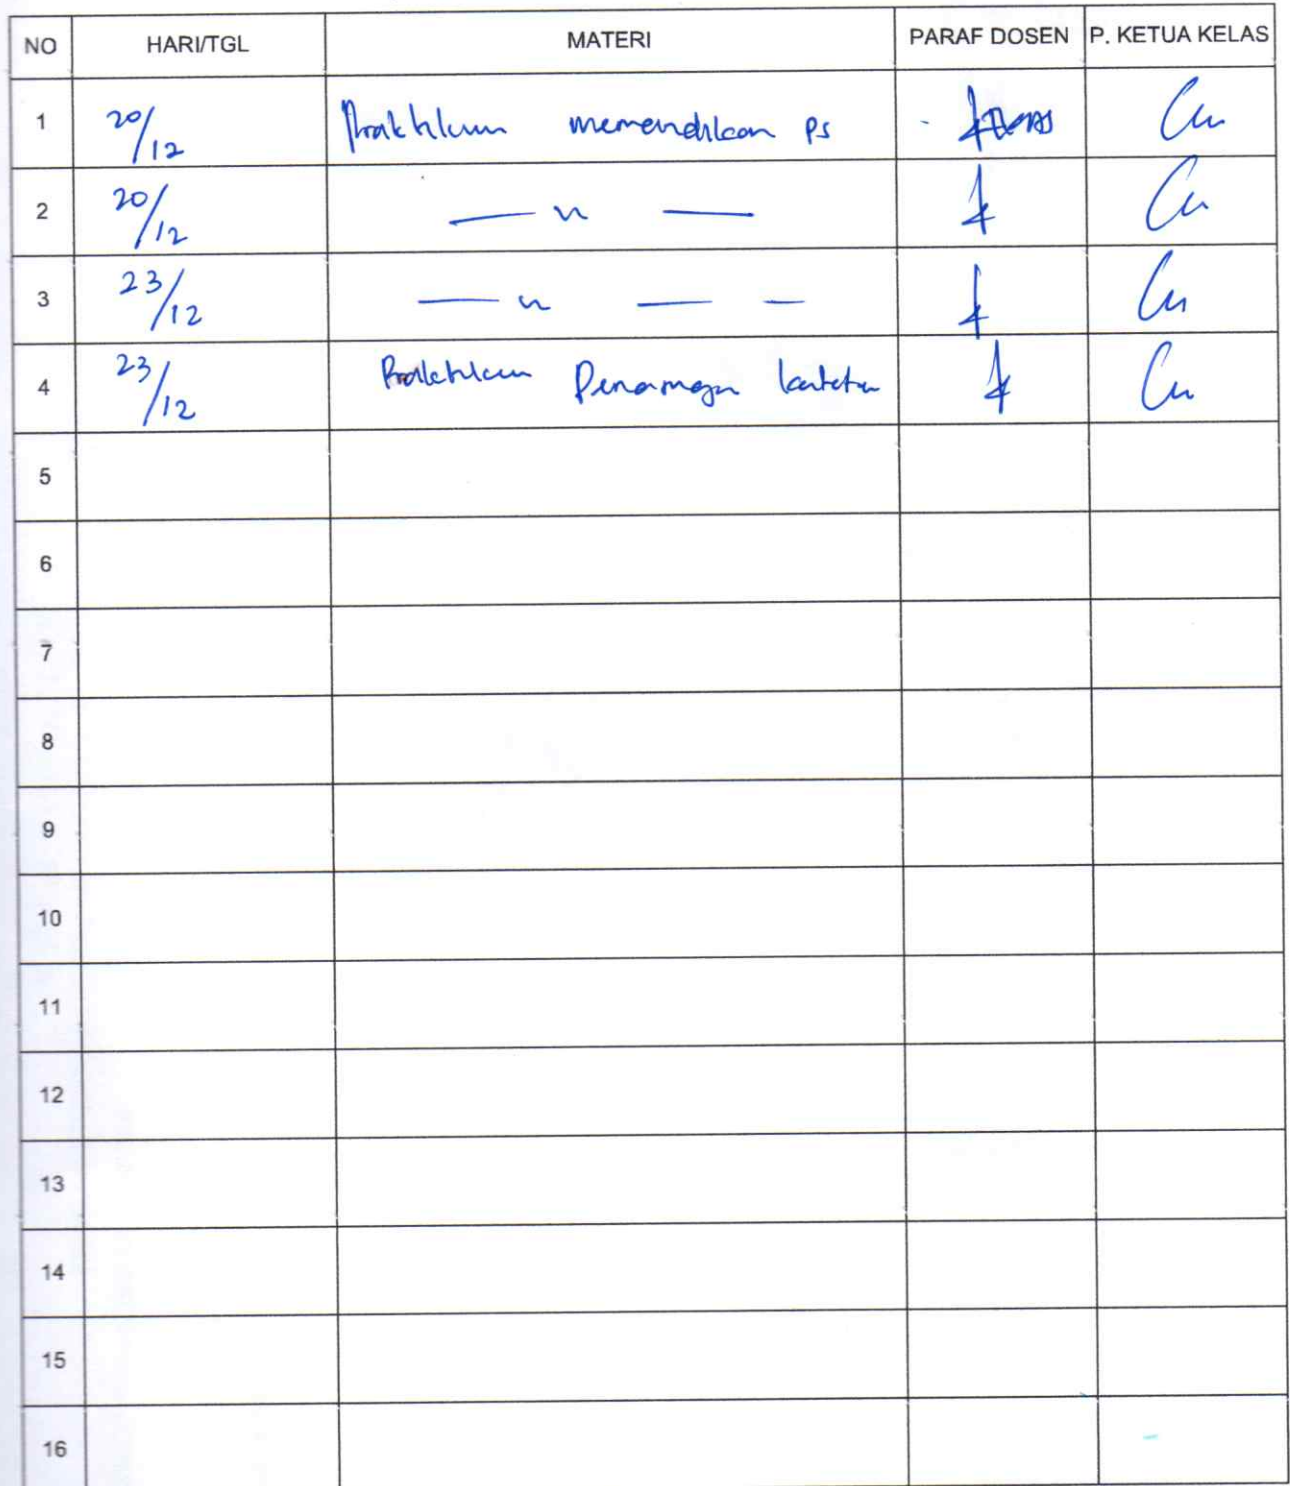 NO HARI/TGL MATERI PARAF DOSEN P. KETUA KELAS
1 20/12 Praktikum memandikan ps
2 20/12 — n —
3 23/12 — n — —
4 23/12 Praktikum
5
6
7
8
9
10
11
12
13
14
15
16